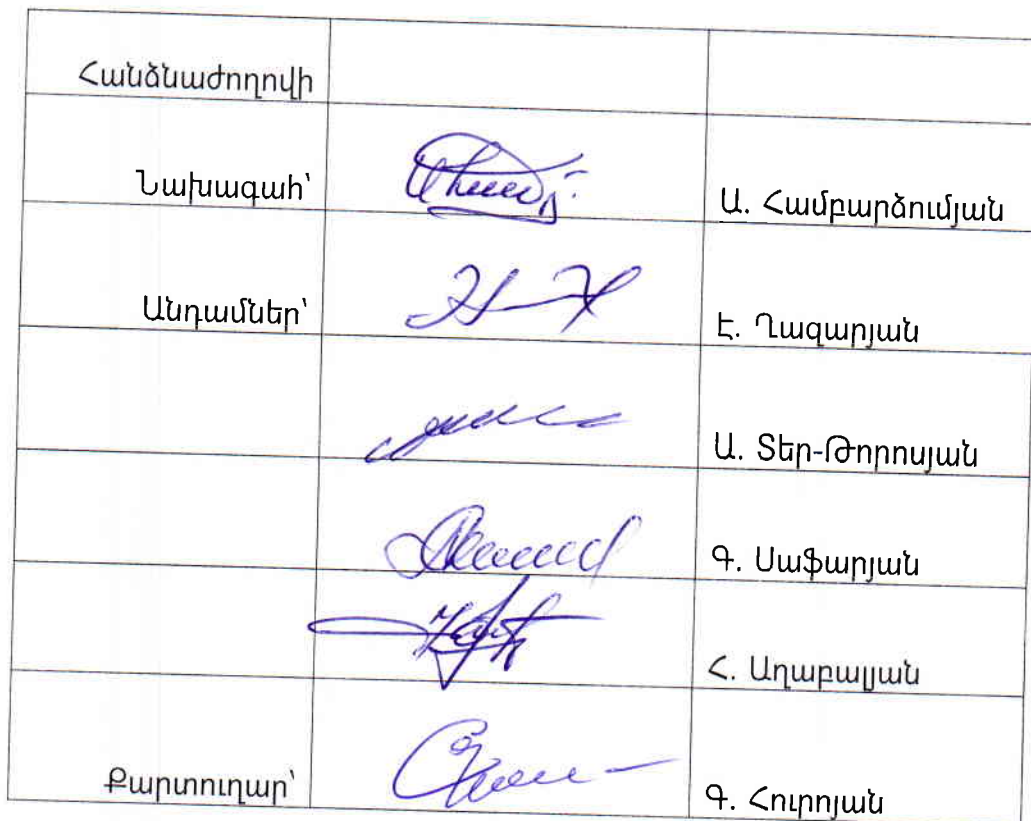 Հանձնաժողովի
Նախագահ՝ Ա. Համբարձումյան
Անդամներ՝ Է. Ղազարյան
Ա. Տեր-Թորոսյան
Գ. Սաֆարյան
Հ. Աղաբալյան
Քարտուղար՝ Գ. Հուրոյան